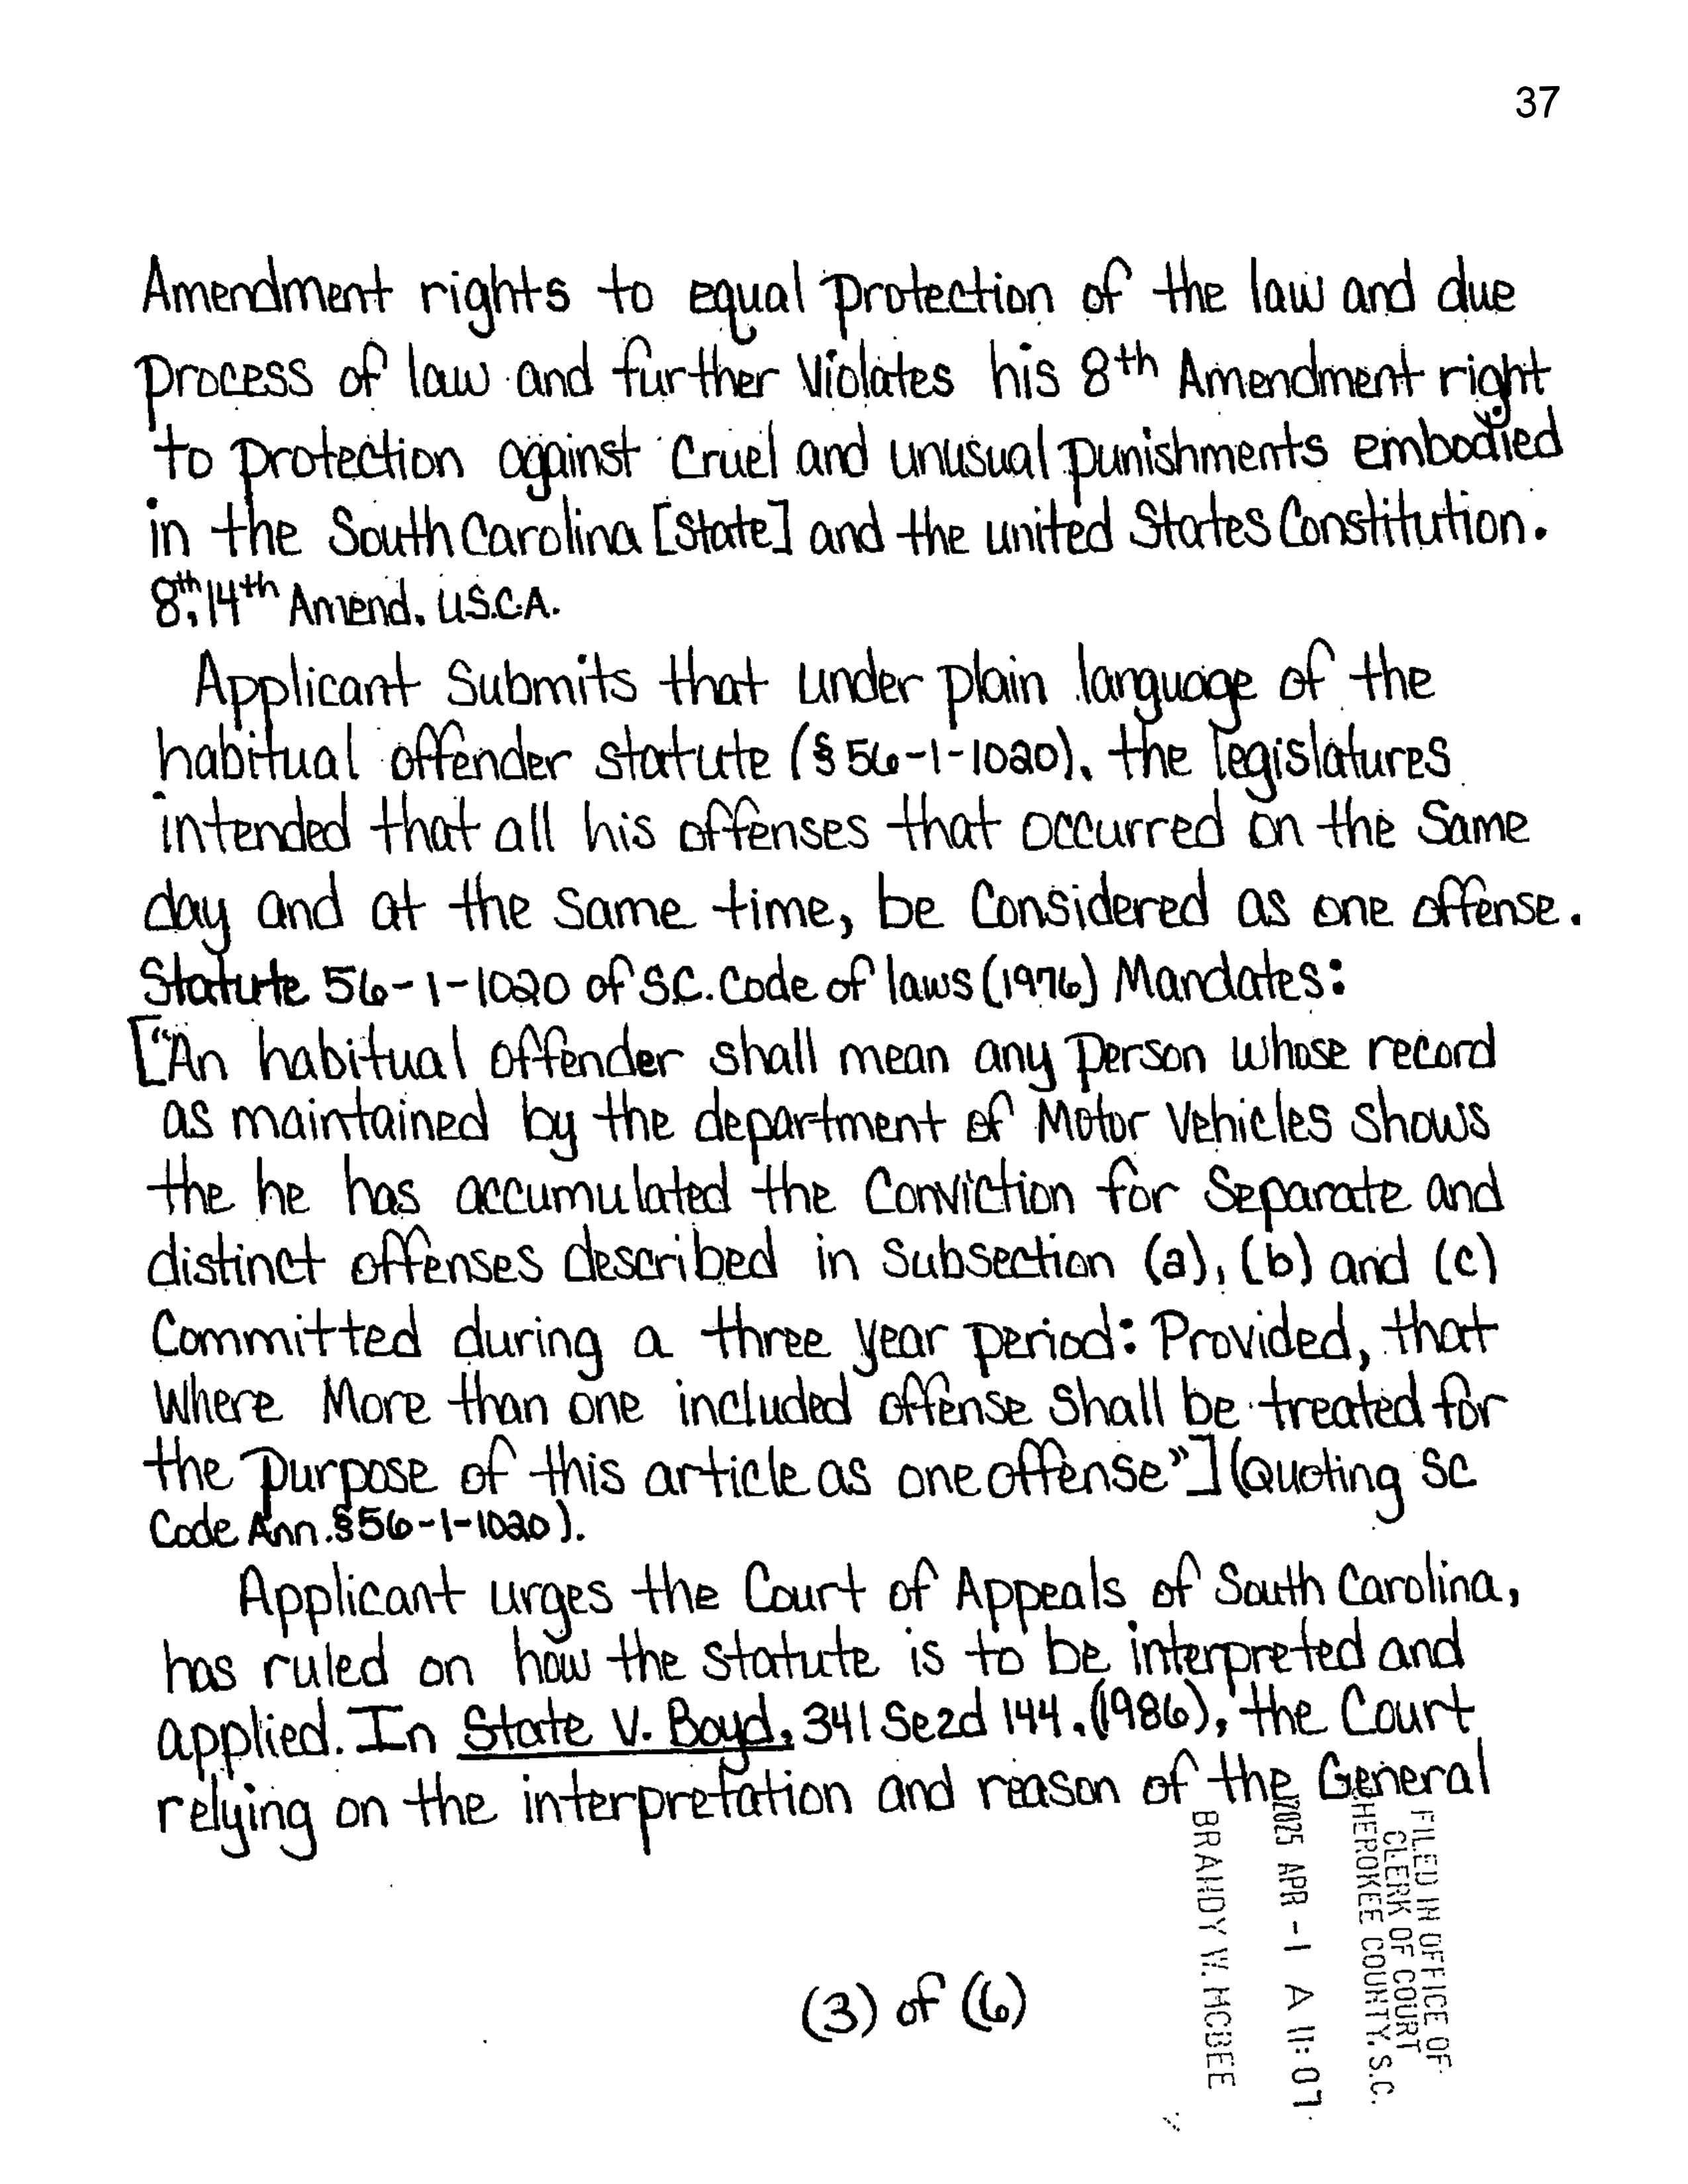 37
Amendment rights to equal protection of the law and due
process of law and further violates his 8th Amendment right
to protection against cruel and unusual punishments embodied
in the South Carolina [State] and the united States Constitution.
8th, 14th Amend. U.S.C.A.
Applicant Submits that under plain language of the
habitual offender statute (§56-1-1020), the legislatures
intended that all his offenses that occurred on the Same
day and at the same time, be Considered as one offense.
Statute 56-1-1020 of S.C. Code of laws (1976) Mandates:
["An habitual offender shall mean any Person whose record
as maintained by the department of Motor Vehicles shows
the he has accumulated the Conviction for Separate and
distinct offenses described in Subsection (a), (b) and (c)
Committed during a three year period: Provided, that
Where More than one included offense Shall be treated for
the Purpose of this article as one offense"] (Quoting SC
Code Ann. §56-1-1020).
Applicant urges the Court of Appeals of South Carolina,
has ruled on how the statute is to be interpreted and
applied. In State v. Boyd, 341 Se2d 144. (1986), the Court
relying on the interpretation and reason of the General
(3) of (6)
FILED IN OFFICE OF
CLERK OF COURT
CHEROKEE COUNTY. S.C.
2025 APR -1 A 11: 07
BRANDY W. MCBEE